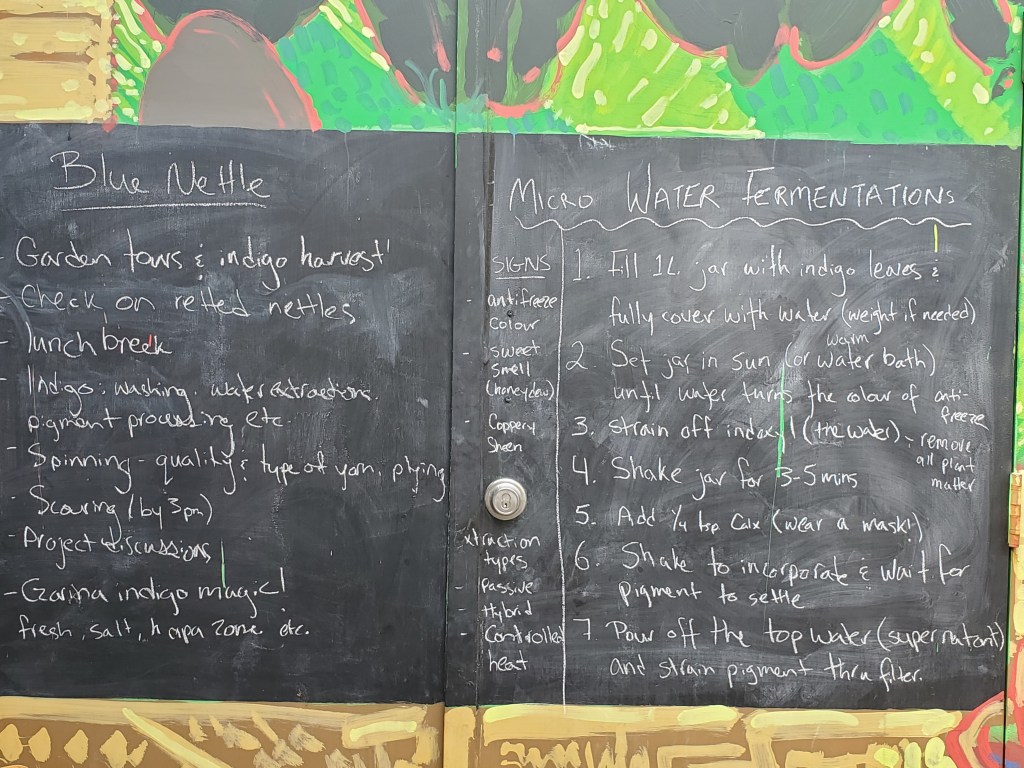 Blue Nettle
- Garden tours & indigo harvest!
- Check on retted nettles
- lunch break
- Indigo: washing, water extractions,
pigment processing, etc.
- Spinning - quality & type of yarn, plying
- Scouring (by 3pm)
- Project discussions
- Czarina indigo magic!
fresh, salt, etc.
MICRO WATER FERMENTATIONS
SIGNS
- antifreeze
Colour
- sweet
smell
(honeydew)
- Coppery
Sheen
xtraction
types
- Passive
- Hybrid
- Controlled
heat
1. Fill 1L jar with indigo leaves &
fully cover with water (weight if needed)
2 Set jar in sun (or warm water bath)
until water turns the colour of anti-
freeze
3. strain off indoxyl (the water) - remove
all plant
matter
4. Shake jar for 3-5 mins
5. Add 1/4 tsp Calx (wear a mask!)
6. Shake to incorporate & wait for
pigment to settle
7 Pour off the top water (supernatant)
and strain pigment thru filter.